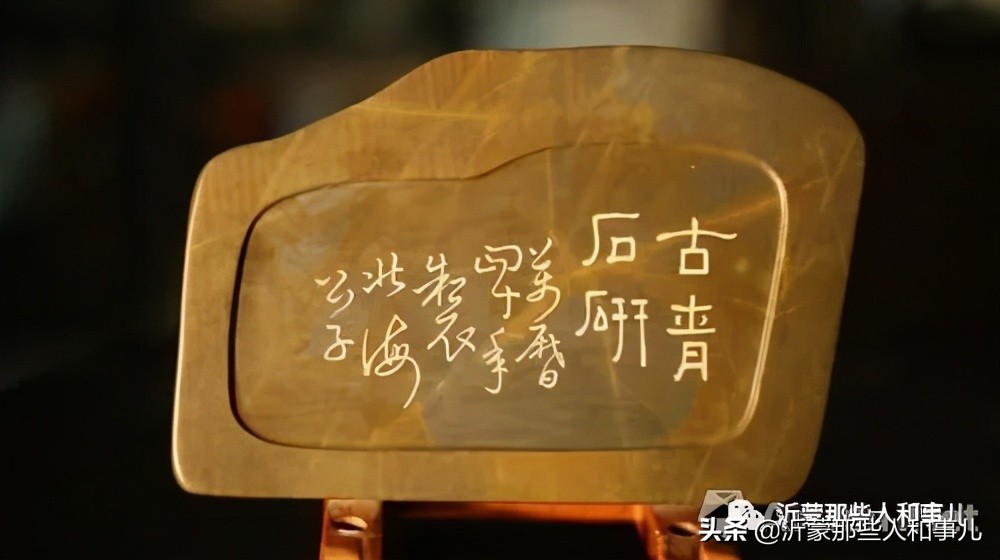 古青
石研
萬曆
四十年
製
北海
公子
沂蒙那些人和事儿
头条 @沂蒙那些人和事儿